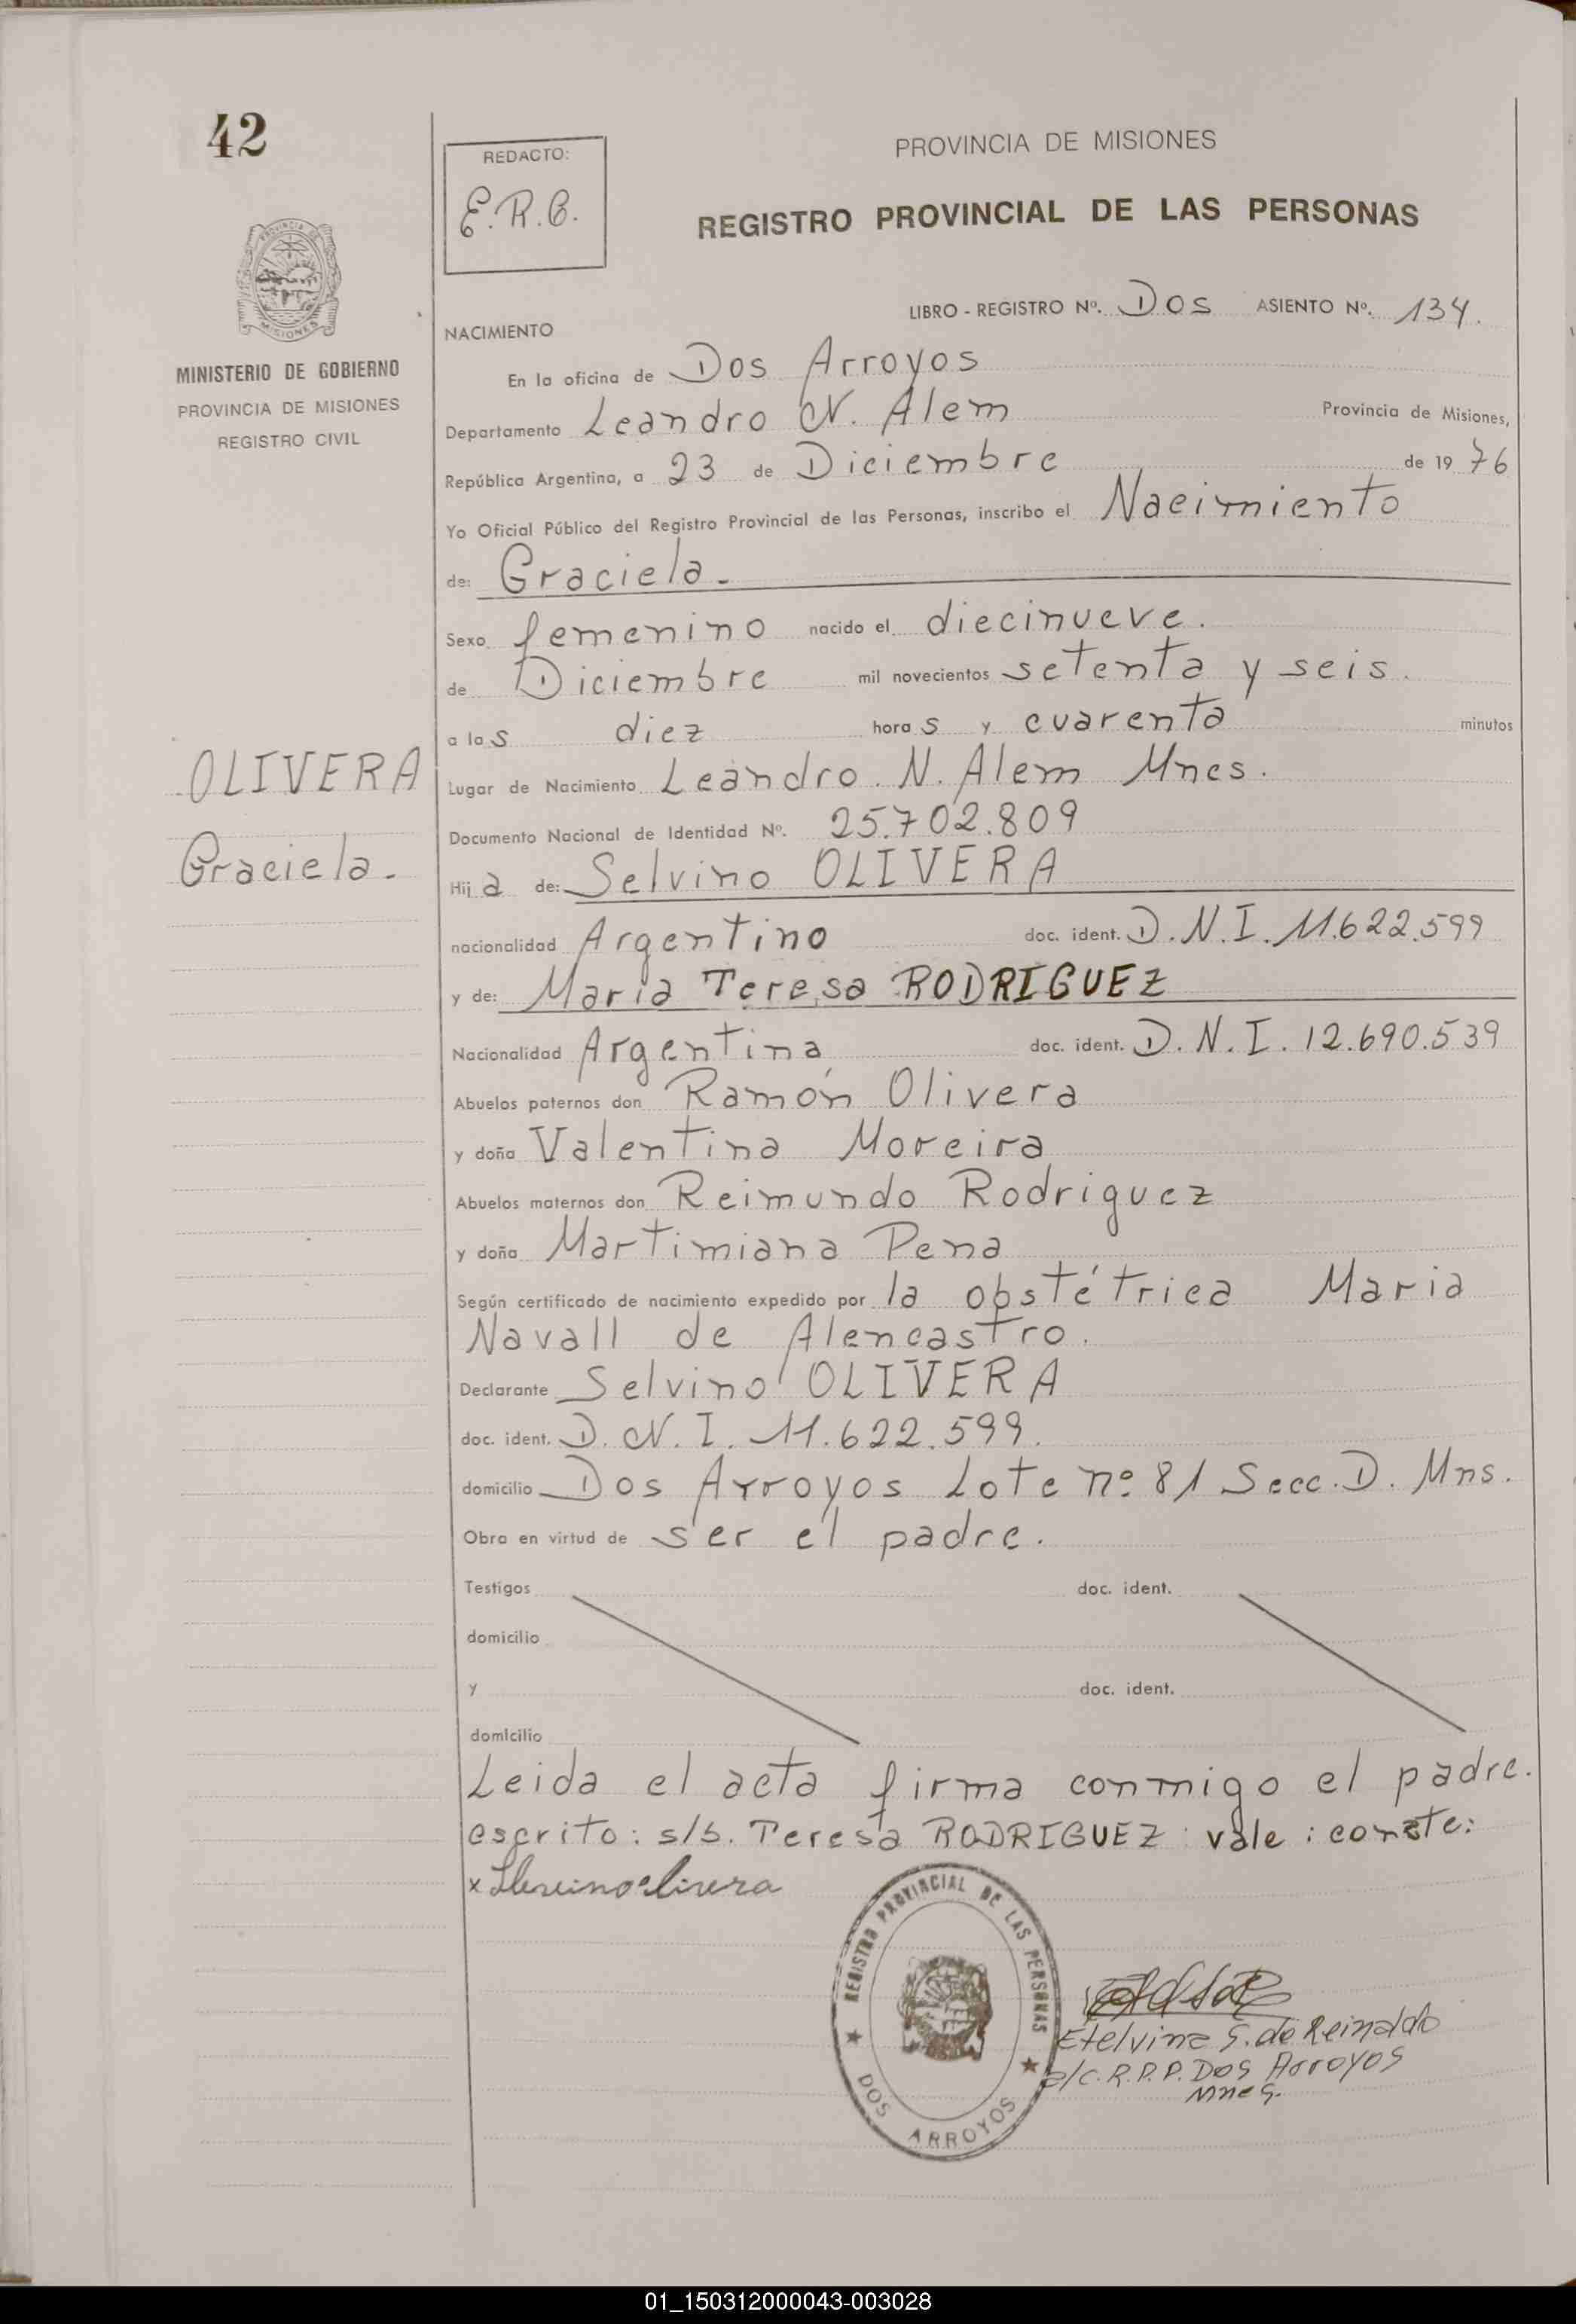 42
REDACTO:
E.R.B.
PROVINCIA DE MISIONES
REGISTRO PROVINCIAL DE LAS PERSONAS
MISIONES
MINISTERIO DE GOBIERNO
PROVINCIA DE MISIONES
REGISTRO CIVIL
LIBRO - REGISTRO Nº. Dos ASIENTO Nº. 134.
NACIMIENTO
En la oficina de Dos Arroyos
Departamento Leandro N. Alem Provincia de Misiones,
República Argentina, a 23 de Diciembre de 19 76
Yo Oficial Público del Registro Provincial de las Personas, inscribo el Nacimiento
de: Graciela.
Sexo femenino nacido el diecinueve.
de Diciembre mil novecientos setenta y seis.
a las diez horas y cuarenta minutos
OLIVERA
Graciela.
Lugar de Nacimiento Leandro. N. Alem Mnes.
Documento Nacional de Identidad Nº. 25.702.809
Hija de: Selvino OLIVERA
nacionalidad Argentino doc. ident. D.N.I. 11.622.599
y de: Maria Teresa RODRIGUEZ
Nacionalidad Argentina doc. ident. D.N.I. 12.690.539
Abuelos paternos don Ramón Olivera
y doña Valentina Moreira
Abuelos maternos don Reimundo Rodriguez
y doña Martimiana Pena
Según certificado de nacimiento expedido por la obstétrica Maria
Navall de Alencastro.
Declarante Selvino OLIVERA
doc. ident. D.N.I. 11.622.599.
domicilio Dos Arroyos Lote nº 81 Secc. D. Mns.
Obra en virtud de ser el padre.
Testigos doc. ident.
domicilio
y doc. ident.
domicilio
Leida el acta firma conmigo el padre.
escrito: s/b. Teresa RODRIGUEZ: vale: conste:
REGISTRO PROVINCIAL DE LAS PERSONAS
DOS ARROYOS
Etelvina S. de Reinaldo
a/c. R.P.P. Dos Arroyos
Mnes.
01_150312000043-003028